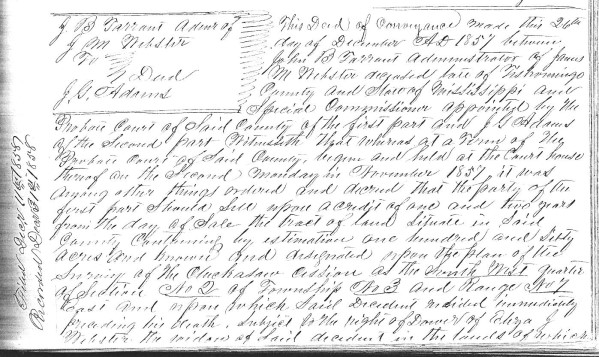 J. B Tarrant Admr of
J M Webster
To } Deed
J. G. Adams
This Deed of Conveyance made this 26th
day of December A D 1857 between
John B Tarrant Administrator of James
M Webster deceased late of Tishomingo
County and State of Mississippi and
Special Commissioner appointed by the
Probate Court of Said County of the first part and J G Adams
of the Second Part Witnesseth that whereas at a Term of the
Probate Court of Said County, begun and held at the Court house
thereof on the Second Monday in November 1857, it was
among other things ordered and decreed that the party of the
first part Should Sell upon a credit of one and two years
from the day of Sale the tract of land Situate in Said
County Containing by estimation one hundred and Sixty
Acres and known and designated upon the plan of the
Survey of the Chickasaw Cession as the South West quarter
of Section No 2 of Township No 3 and Range No 7
East and upon which Said Decedent resided immediately
preceding his death, Subject to the right of Dower of Eliza J
Webster the widow of Said decedent in the lands of which
Filed Decr 11th 1858
Recorded Decr 31st 1858